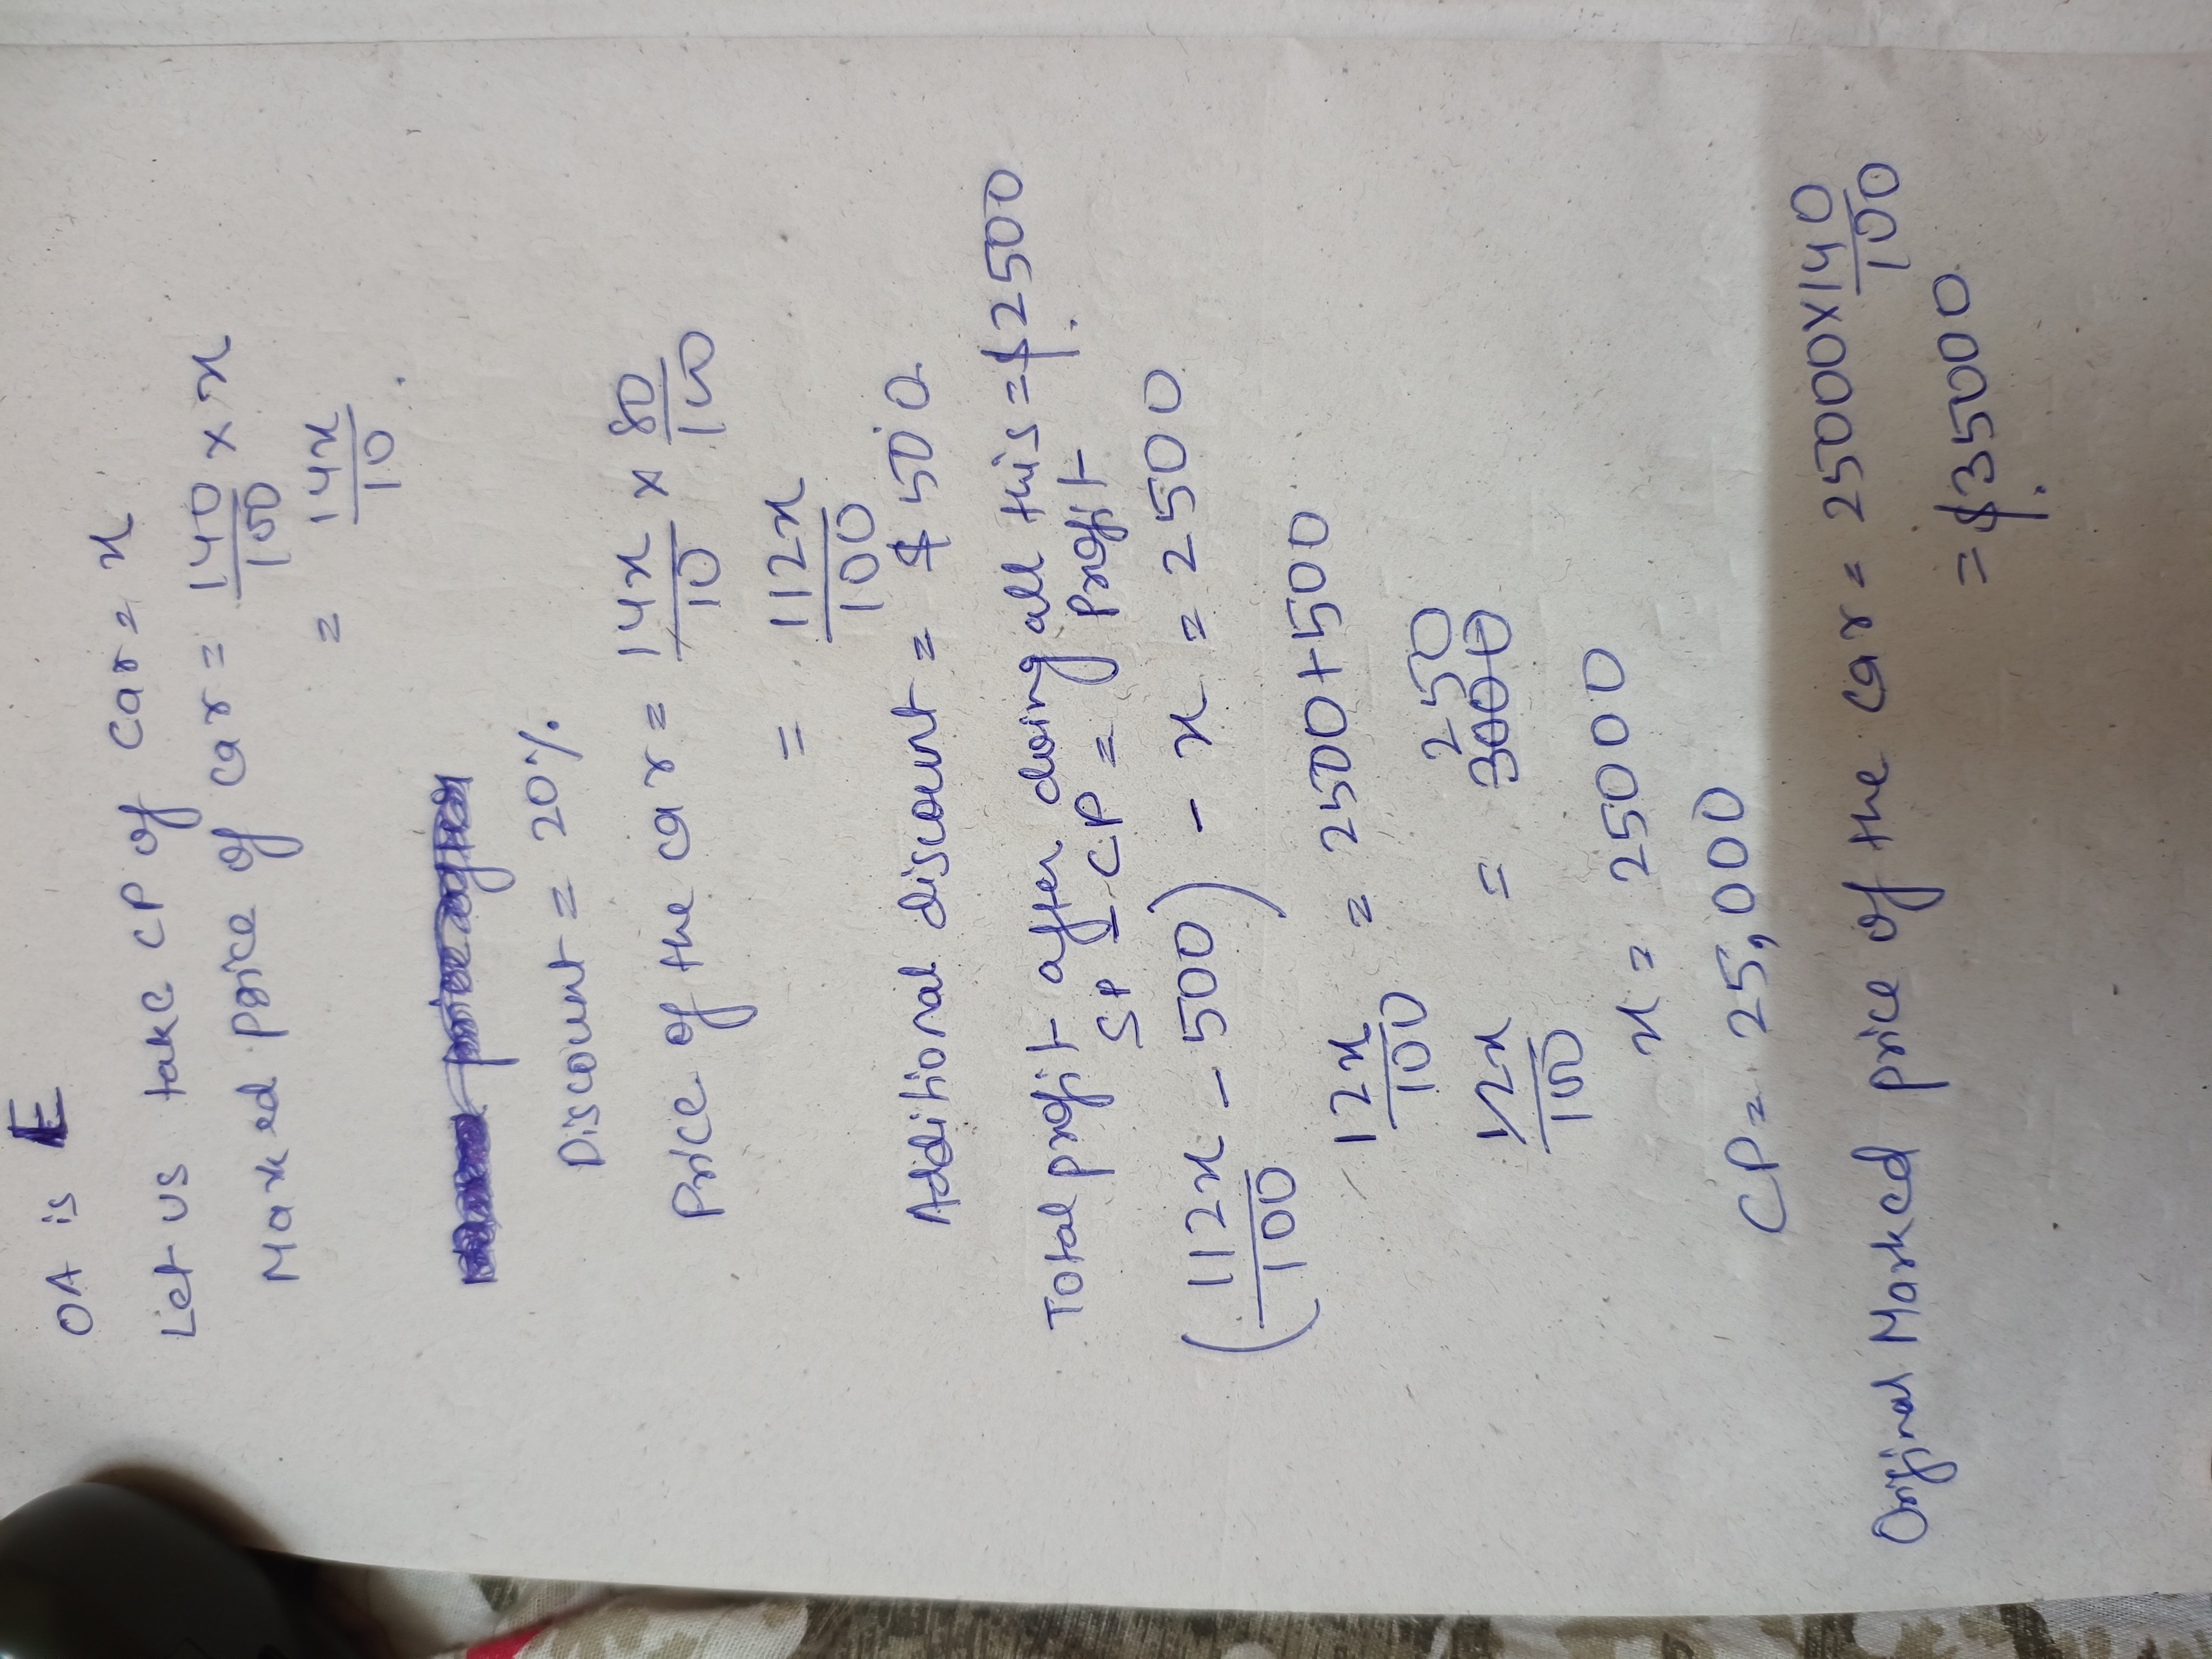 OA is E
Let us take CP of car = x
Marked price of car = 140/100 × x
= 14x/10.
Discount = 20%.
Price of the car = 14x/10 × 80/100
= 112x/100
Additional discount = $500
Total profit after doing all this = $2500.
SP - CP = Profit
(112x/100 - 500) - x = 2500
12x/100 = 2500+500
12x/100 = 3000 250
x = 25000
CP = 25,000
Original Marked price of the car = 25000×140/100
= $35000.